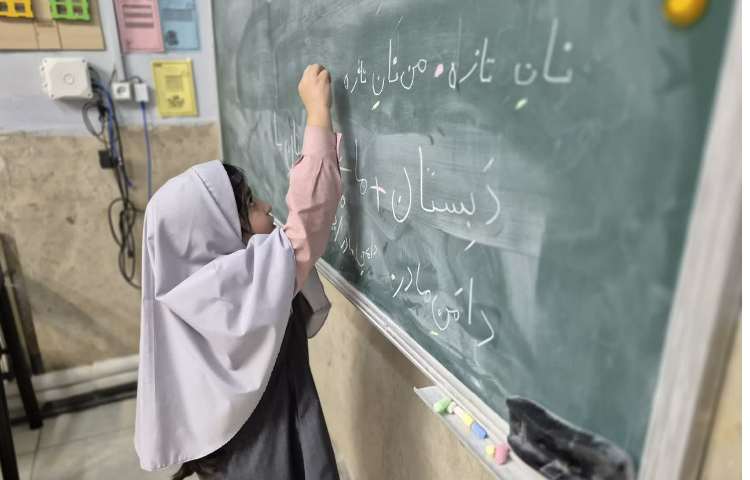 نانِ تازه. من نانِ تازه
دَبِستان + ما
دامَنِ مادر